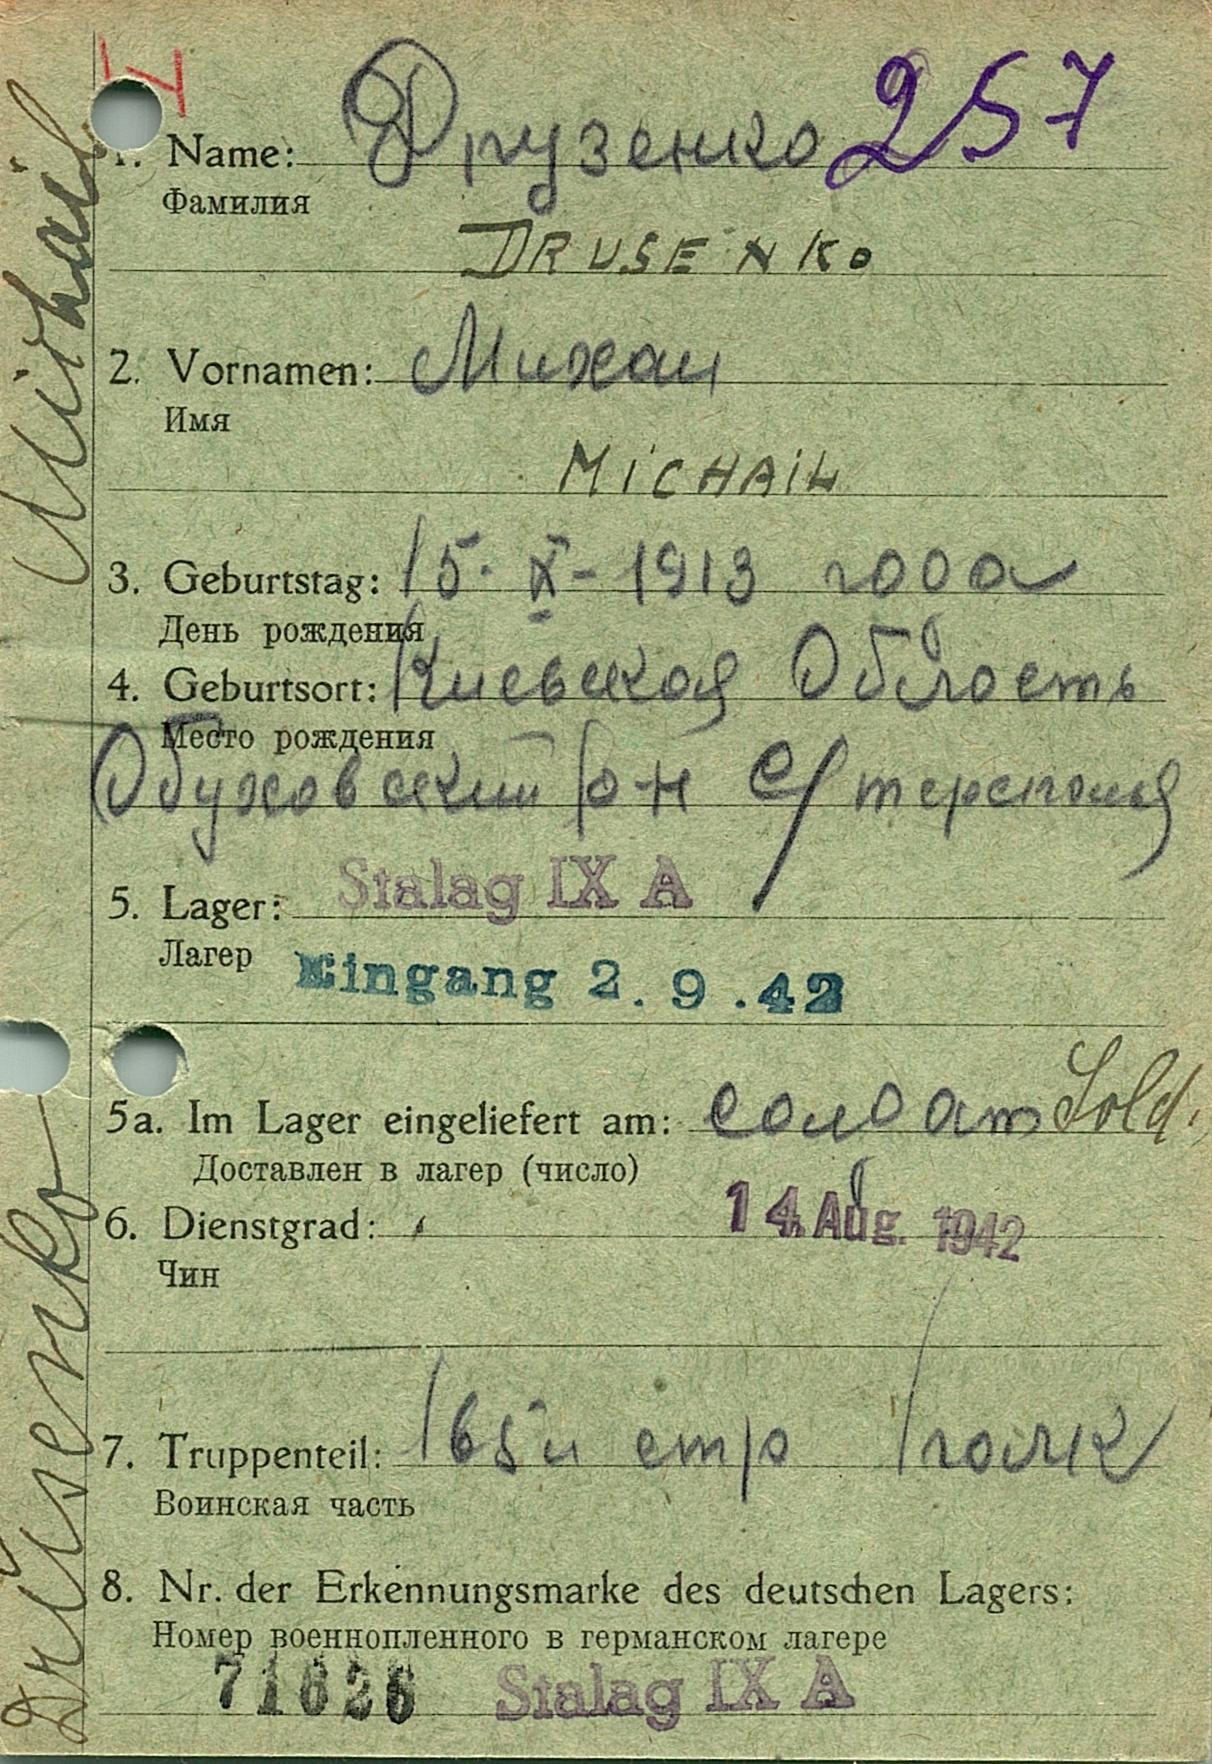 1. Name: Друзенко 257
Фамилия
DRUSENKO
2. Vornamen: Михаи
Имя
MICHAIL
3. Geburtstag: 15. X - 1913 года
День рождения
4. Geburtsort: Киевская Область
Место рождения
Обуховский р-н с/
5. Lager: Stalag IX A
Лагер
Eingang 2.9.42
5a. Im Lager eingeliefert am: солдат Sold.
Доставлен в лагер (число)
14. Aug. 1942
6. Dienstgrad:
Чин
7. Truppenteil: стр полк
Воинская часть
8. Nr. der Erkennungsmarke des deutschen Lagers:
Номер военнопленного в германском лагере
Stalag IX A
Drusenko Michail